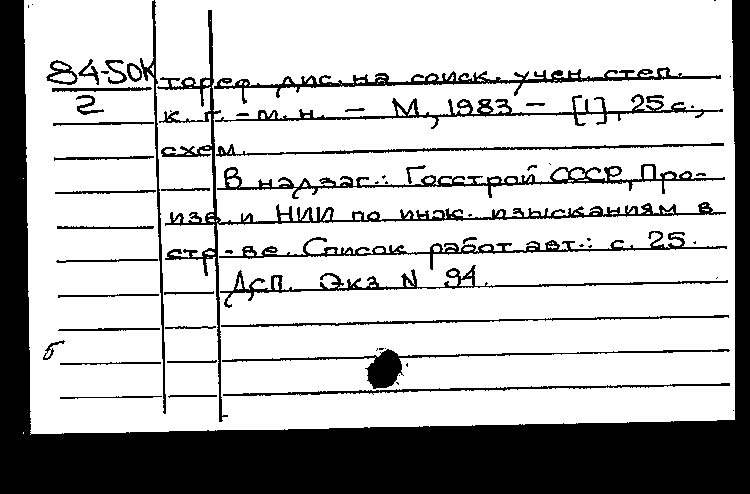 84-50К тореф. дис. на соиск. учен. степ.
2 к. г.-м. н. - М., 1983 - [1], 25 с.,
схем.
В надзаг.: Госстрой СССР, Про-
изв. и НИИ по инж. изысканиям в
стр-ве. Список работ авт.: с. 25.
Дсп. Экз. N 94.
б